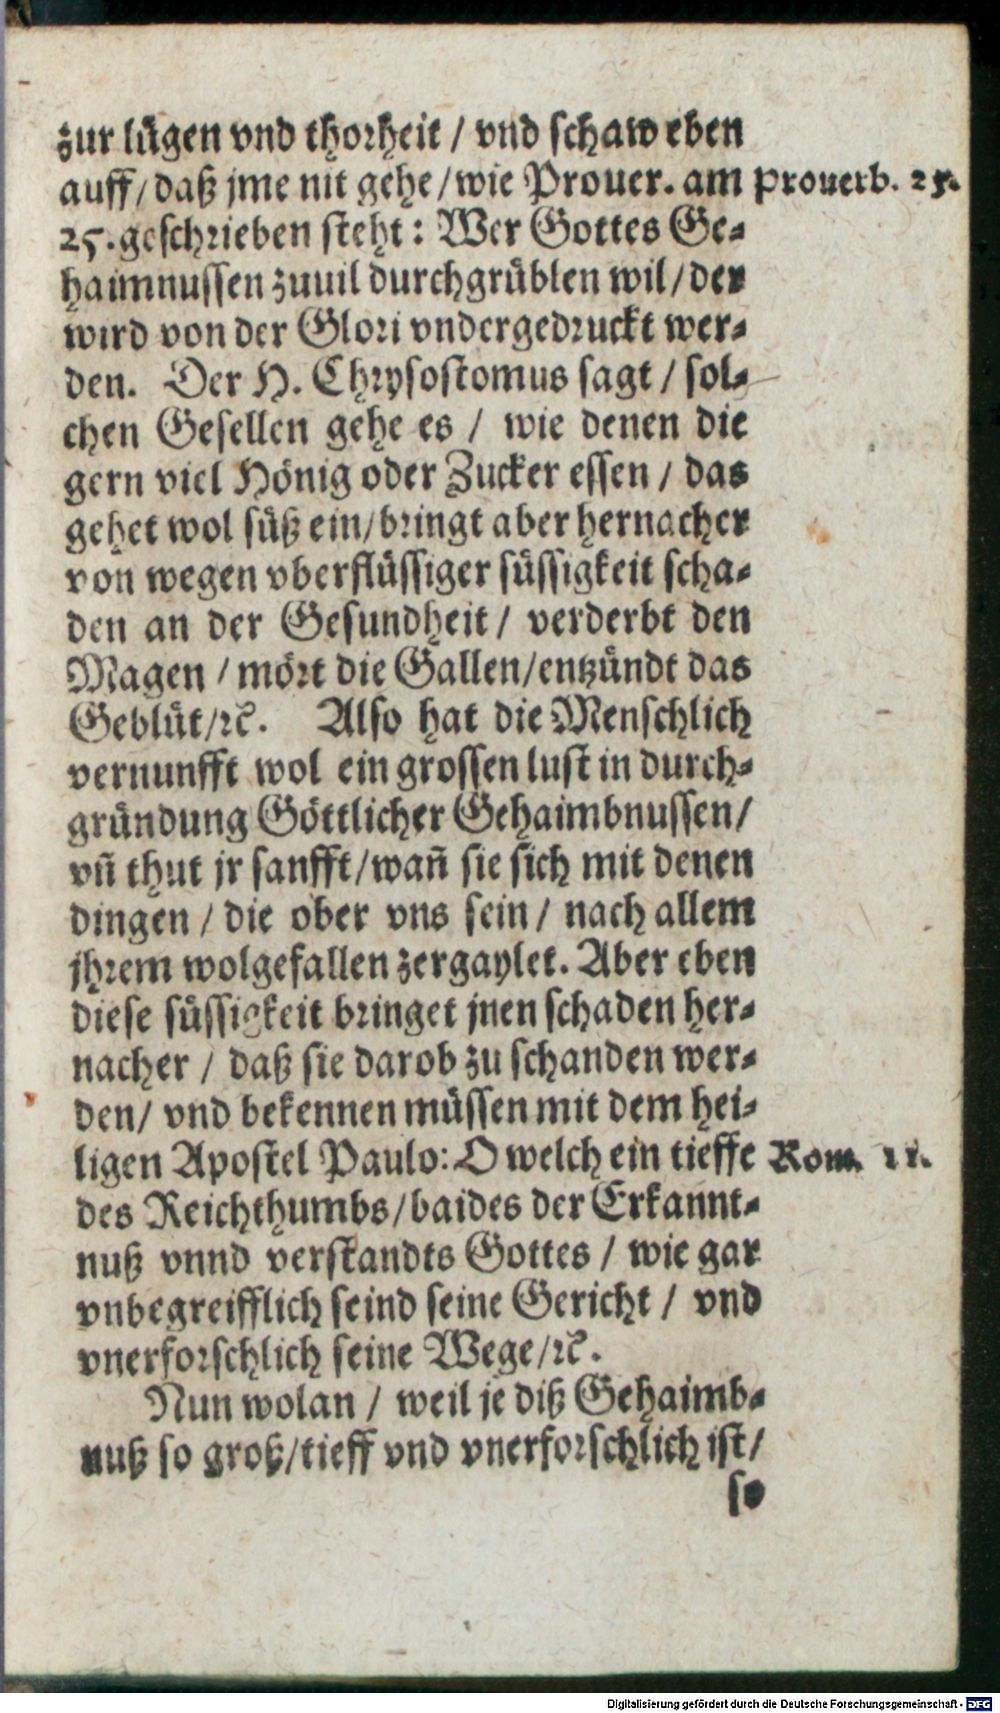 zur lügen vnd thorheit / vnd schaw eben
auff / daß jme nit gehe / wie Prouer. am
Prouerb. 25.
25. geschrieben steht: Wer Gottes Ge-
haimnussen zuuil durchgrüblen wil / der
wird von der Glori vndergedruckt wer-
den. Der H. Chrysostomus sagt / sol-
chen Gesellen gehe es / wie denen die
gern viel Hönig oder Zucker essen / das
gehet wol süß ein / bringt aber hernacher
von wegen vberflüssiger süssigkeit scha-
den an der Gesundheit / verderbt den
Magen / mört die Gallen / entzündt das
Geblüt / ꝛc. Also hat die Menschlich
vernunfft wol ein grossen lust in durch-
gründung Göttlicher Gehaimbnussen /
vñ thut jr sanfft / wañ sie sich mit denen
dingen / die ober vns sein / nach allem
jhrem wolgefallen zergaylet. Aber eben
diese süssigkeit bringet jnen schaden her-
nacher / daß sie darob zu schanden wer-
den / vnd bekennen müssen mit dem hei-
ligen Apostel Paulo: O welch ein tieffe
Rom. 11.
des Reichthumbs / baides der Erkannt-
nuß vnnd verstandts Gottes / wie gar
vnbegreifflich seind seine Gericht / vnd
vnerforschlich seine Wege / ꝛc.
Nun wolan / weil je diß Gehaimb-
nuß so groß / tieff vnd vnerforschlich ist /
so
Digitalisierung gefördert durch die Deutsche Forschungsgemeinschaft - DFG